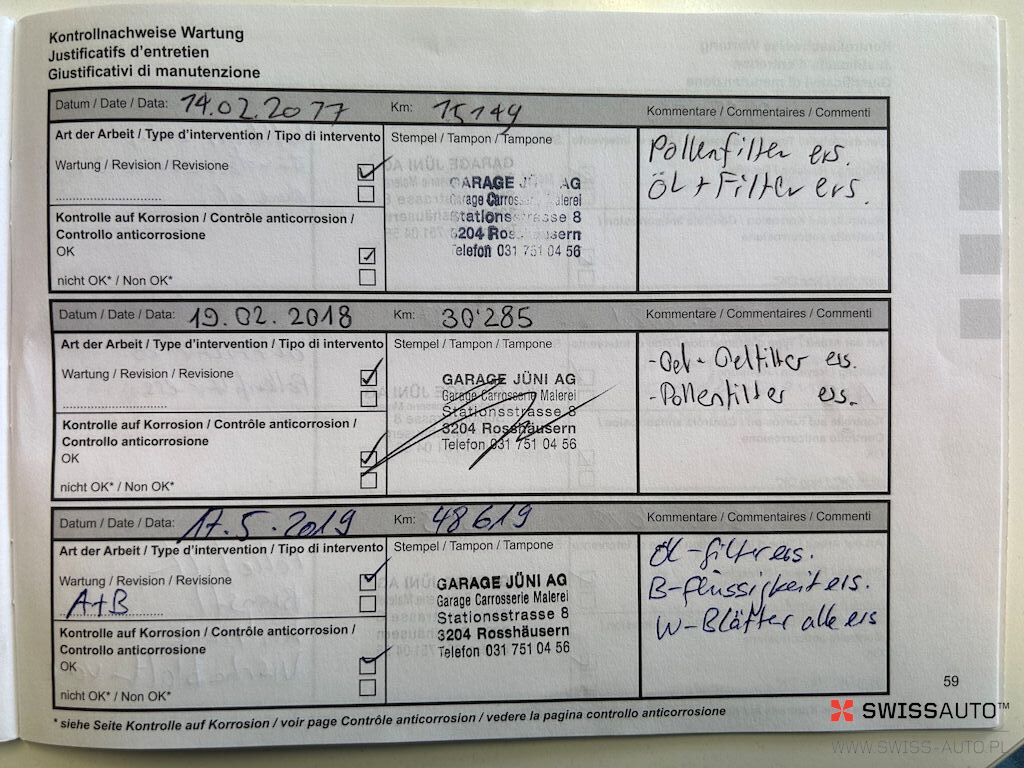 Kontrollnachweise Wartung
Justificatifs d'entretien
Giustificativi di manutenzione
Datum / Date / Data: 14.02.2017 Km: 15149 Kommentare / Commentaires / Commenti
Art der Arbeit / Type d'intervention / Tipo di intervento Stempel / Tampon / Tampone
Pollenfilter ers.
Wartung / Revision / Revisione
ÖL + Filter ers.
GARAGE JÜNI AG
Garage Carrosserie Malerei
Stationsstrasse 8
3204 Rosshäusern
Telefon 031 751 04 56
Kontrolle auf Korrosion / Contrôle anticorrosion /
Controllo anticorrosione
OK
nicht OK* / Non OK*
Datum / Date / Data: 19.02.2018 Km: 30'285 Kommentare / Commentaires / Commenti
Art der Arbeit / Type d'intervention / Tipo di intervento Stempel / Tampon / Tampone
-Oel- Oelfilter ers.
Wartung / Revision / Revisione
-Pollenfilter ers.
GARAGE JÜNI AG
Garage Carrosserie Malerei
Stationsstrasse 8
3204 Rosshäusern
Telefon 031 751 04 56
Kontrolle auf Korrosion / Contrôle anticorrosion /
Controllo anticorrosione
OK
nicht OK* / Non OK*
Datum / Date / Data: 17.5.2019 Km: 48619 Kommentare / Commentaires / Commenti
Art der Arbeit / Type d'intervention / Tipo di intervento Stempel / Tampon / Tampone
Öl-filter ers.
Wartung / Revision / Revisione
A+B
B-flüssigkeit ers.
W-Blätter alle ers
GARAGE JÜNI AG
Garage Carrosserie Malerei
Stationsstrasse 8
3204 Rosshäusern
Telefon 031 751 04 56
Kontrolle auf Korrosion / Contrôle anticorrosion /
Controllo anticorrosione
OK
nicht OK* / Non OK*
59
* siehe Seite Kontrolle auf Korrosion / voir page Contrôle anticorrosion / vedere la pagina controllo anticorrosione
SWISSAUTO™
WWW.SWISS-AUTO.PL